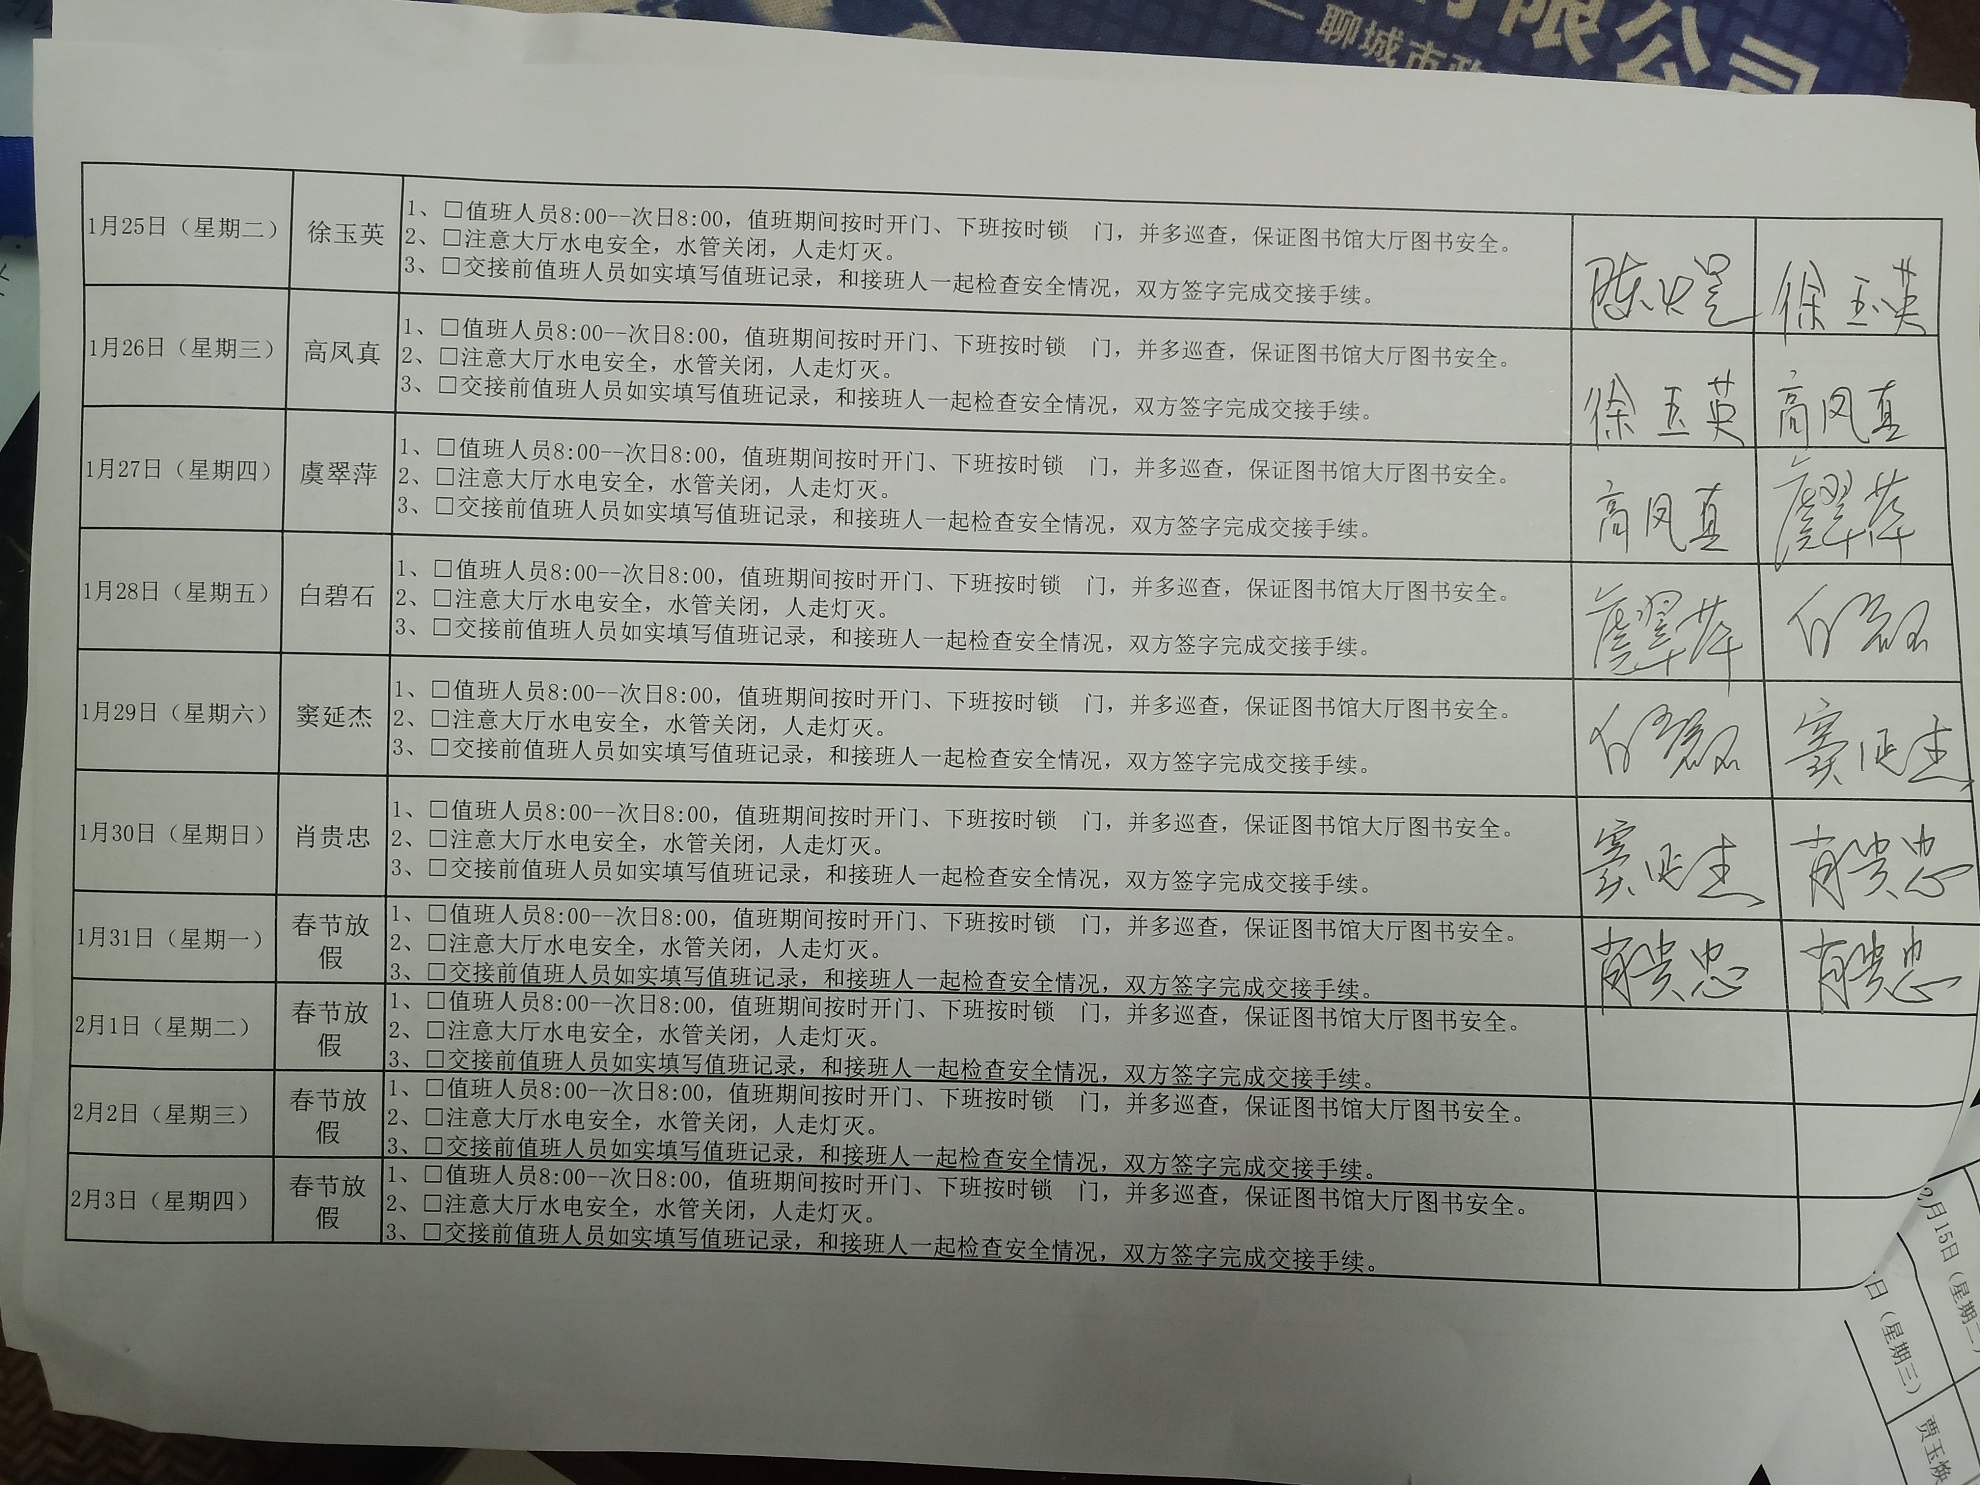 有限公司
聊城市政
1月25日（星期二）
徐玉英
1、□值班人员8:00--次日8:00，值班期间按时开门、下班按时锁　门，并多巡查，保证图书馆大厅图书安全。
2、□注意大厅水电安全，水管关闭，人走灯灭。
3、□交接前值班人员如实填写值班记录，和接班人一起检查安全情况，双方签字完成交接手续。
徐玉英
1月26日（星期三）
高凤真
1、□值班人员8:00--次日8:00，值班期间按时开门、下班按时锁　门，并多巡查，保证图书馆大厅图书安全。
2、□注意大厅水电安全，水管关闭，人走灯灭。
3、□交接前值班人员如实填写值班记录，和接班人一起检查安全情况，双方签字完成交接手续。
徐玉英
高凤真
1月27日（星期四）
虞翠萍
1、□值班人员8:00--次日8:00，值班期间按时开门、下班按时锁　门，并多巡查，保证图书馆大厅图书安全。
2、□注意大厅水电安全，水管关闭，人走灯灭。
3、□交接前值班人员如实填写值班记录，和接班人一起检查安全情况，双方签字完成交接手续。
高凤真
虞翠萍
1月28日（星期五）
白碧石
1、□值班人员8:00--次日8:00，值班期间按时开门、下班按时锁　门，并多巡查，保证图书馆大厅图书安全。
2、□注意大厅水电安全，水管关闭，人走灯灭。
3、□交接前值班人员如实填写值班记录，和接班人一起检查安全情况，双方签字完成交接手续。
虞翠萍
白碧石
1月29日（星期六）
窦延杰
1、□值班人员8:00--次日8:00，值班期间按时开门、下班按时锁　门，并多巡查，保证图书馆大厅图书安全。
2、□注意大厅水电安全，水管关闭，人走灯灭。
3、□交接前值班人员如实填写值班记录，和接班人一起检查安全情况，双方签字完成交接手续。
白碧石
窦延杰
1月30日（星期日）
肖贵忠
1、□值班人员8:00--次日8:00，值班期间按时开门、下班按时锁　门，并多巡查，保证图书馆大厅图书安全。
2、□注意大厅水电安全，水管关闭，人走灯灭。
3、□交接前值班人员如实填写值班记录，和接班人一起检查安全情况，双方签字完成交接手续。
窦延杰
肖贵忠
1月31日（星期一）
春节放
假
1、□值班人员8:00--次日8:00，值班期间按时开门、下班按时锁　门，并多巡查，保证图书馆大厅图书安全。
2、□注意大厅水电安全，水管关闭，人走灯灭。
3、□交接前值班人员如实填写值班记录，和接班人一起检查安全情况，双方签字完成交接手续。
肖贵忠
肖贵忠
2月1日（星期二）
春节放
假
1、□值班人员8:00--次日8:00，值班期间按时开门、下班按时锁　门，并多巡查，保证图书馆大厅图书安全。
2、□注意大厅水电安全，水管关闭，人走灯灭。
3、□交接前值班人员如实填写值班记录，和接班人一起检查安全情况，双方签字完成交接手续。
2月2日（星期三）
春节放
假
1、□值班人员8:00--次日8:00，值班期间按时开门、下班按时锁　门，并多巡查，保证图书馆大厅图书安全。
2、□注意大厅水电安全，水管关闭，人走灯灭。
3、□交接前值班人员如实填写值班记录，和接班人一起检查安全情况，双方签字完成交接手续。
2月3日（星期四）
春节放
假
1、□值班人员8:00--次日8:00，值班期间按时开门、下班按时锁　门，并多巡查，保证图书馆大厅图书安全。
2、□注意大厅水电安全，水管关闭，人走灯灭。
3、□交接前值班人员如实填写值班记录，和接班人一起检查安全情况，双方签字完成交接手续。
2月15日（星期二）
日（星期三）
贾玉焕